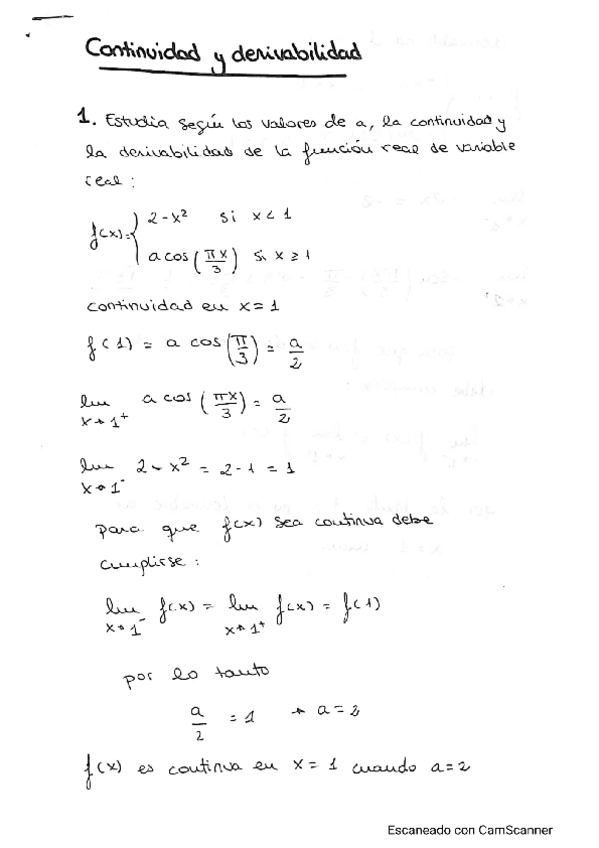 Continuidad y derivabilidad
1. Estudia según los valores de a, la continuidad y
la derivabilidad de la función real de variable
real:
f(x)= { 2-x² si x < 1
a cos(πx/3) si x ≥ 1
continuidad en x=1
f(1) = a cos(π/3) = a/2
lim x→1⁺ a cos(πx/3) = a/2
lim x→1⁻ 2-x² = 2-1 = 1
para que f(x) sea continua debe
cumplirse:
lim x→1⁻ f(x) = lim x→1⁺ f(x) = f(1)
por lo tanto
a/2 = 1 → a=2
f(x) es continua en x=1 cuando a=2
Escaneado con CamScanner